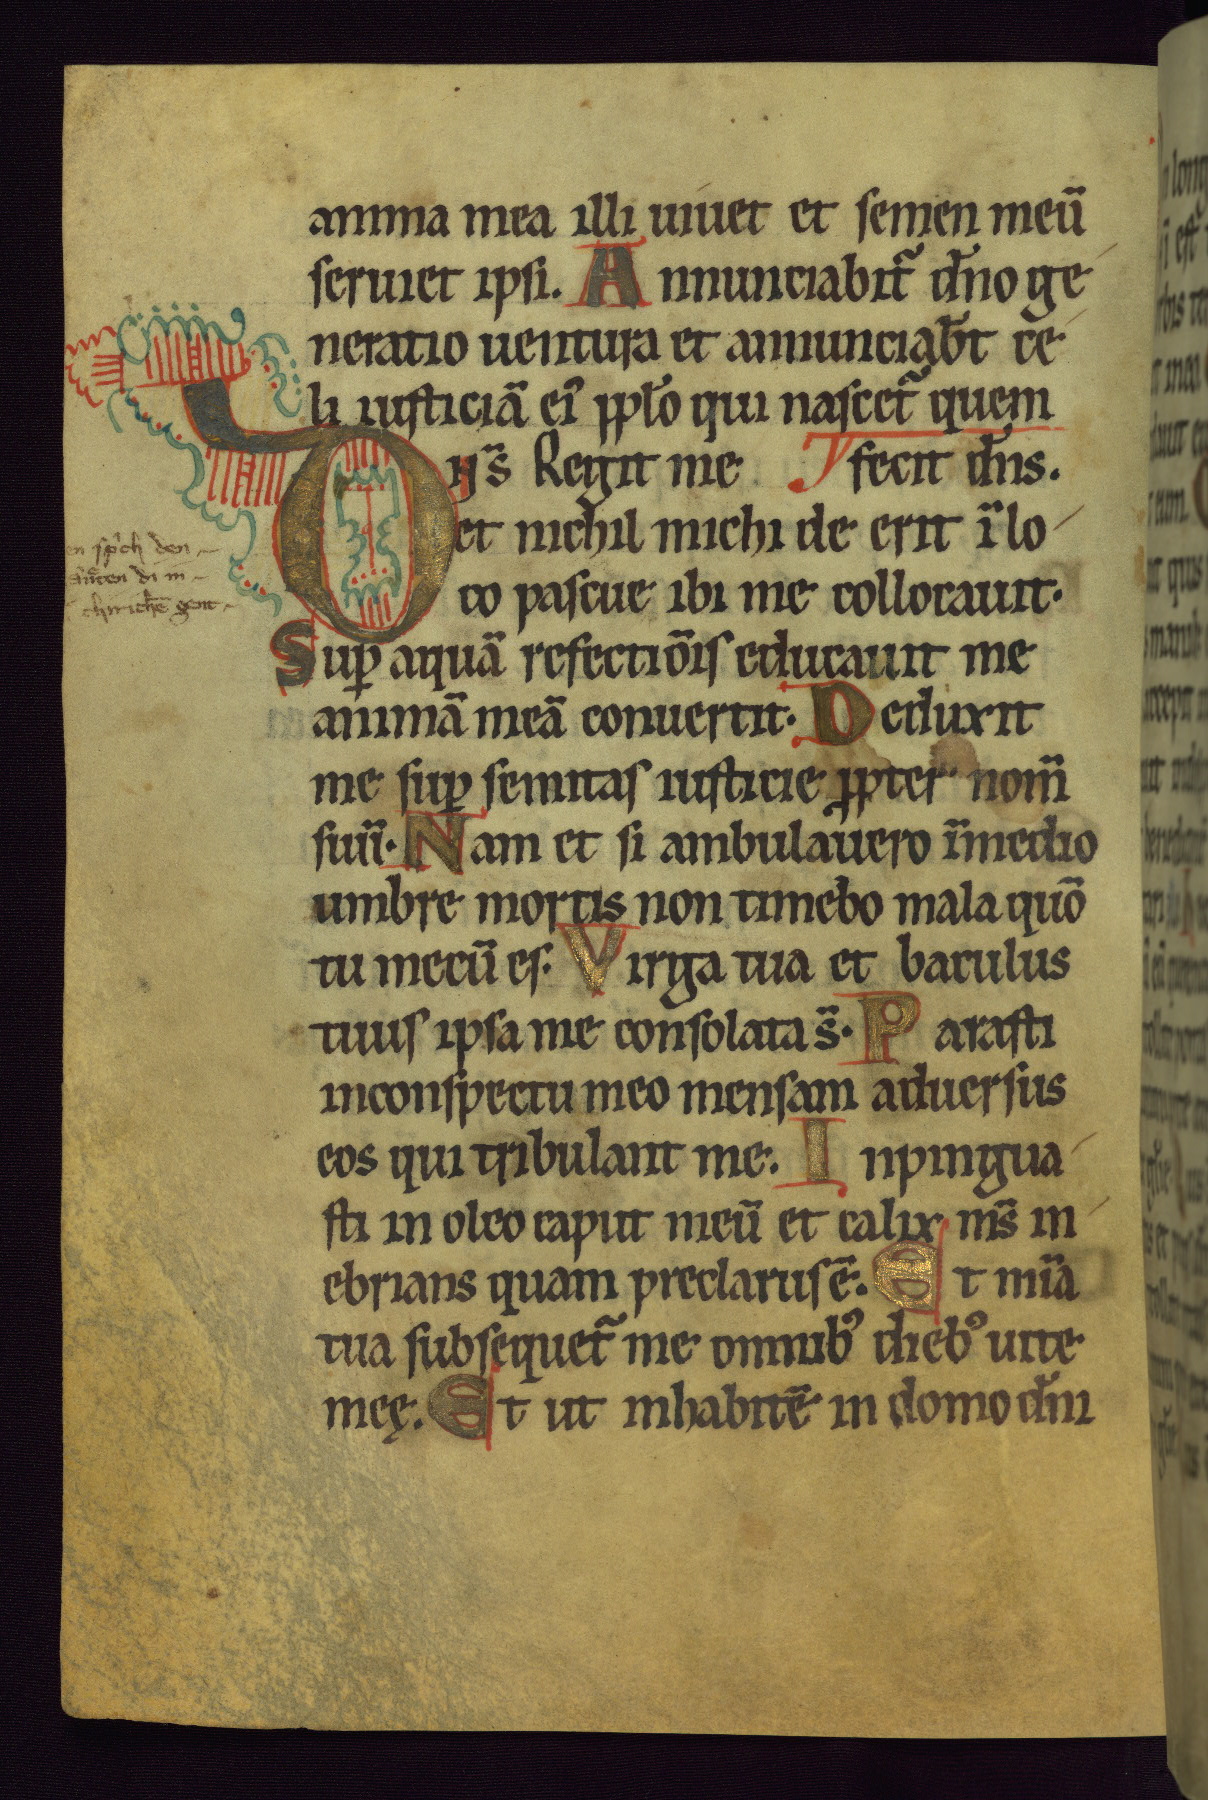 anima mea illi uiuet et semen meū
seruiet ipsi. Annunciabit᷑ dn̄o ge
neratio uentura et annunciab̄t ce
li iusticiā ei᷑ ppl̄o qui nascet᷑ quem
Dn̄s Regit me fecit dn̄s.
et nichil michi de erit ī lo
co pascue ibi me collocauit.
Sup aquā refectiōis educauit me
animā meā conuertit. Deduxit
me sup semitas iusticie ppter nom̄
suū. Nam et si ambulauero īmedio
umbre mortis non timebo mala quō
tu mecū es. Virga tua et baculus
tuus ipsa me consolata s̄. Parasti
inconspectu meo mensam aduersus
eos qui tribulant me. Inpingua
sti in oleo caput meū et calix ms̄ in
ebrians quam preclarus ē. Et mīa
tua subsequet᷑ me omnibꝰ diebꝰ uite
meę. Et ut inhabitē in domo dn̄i